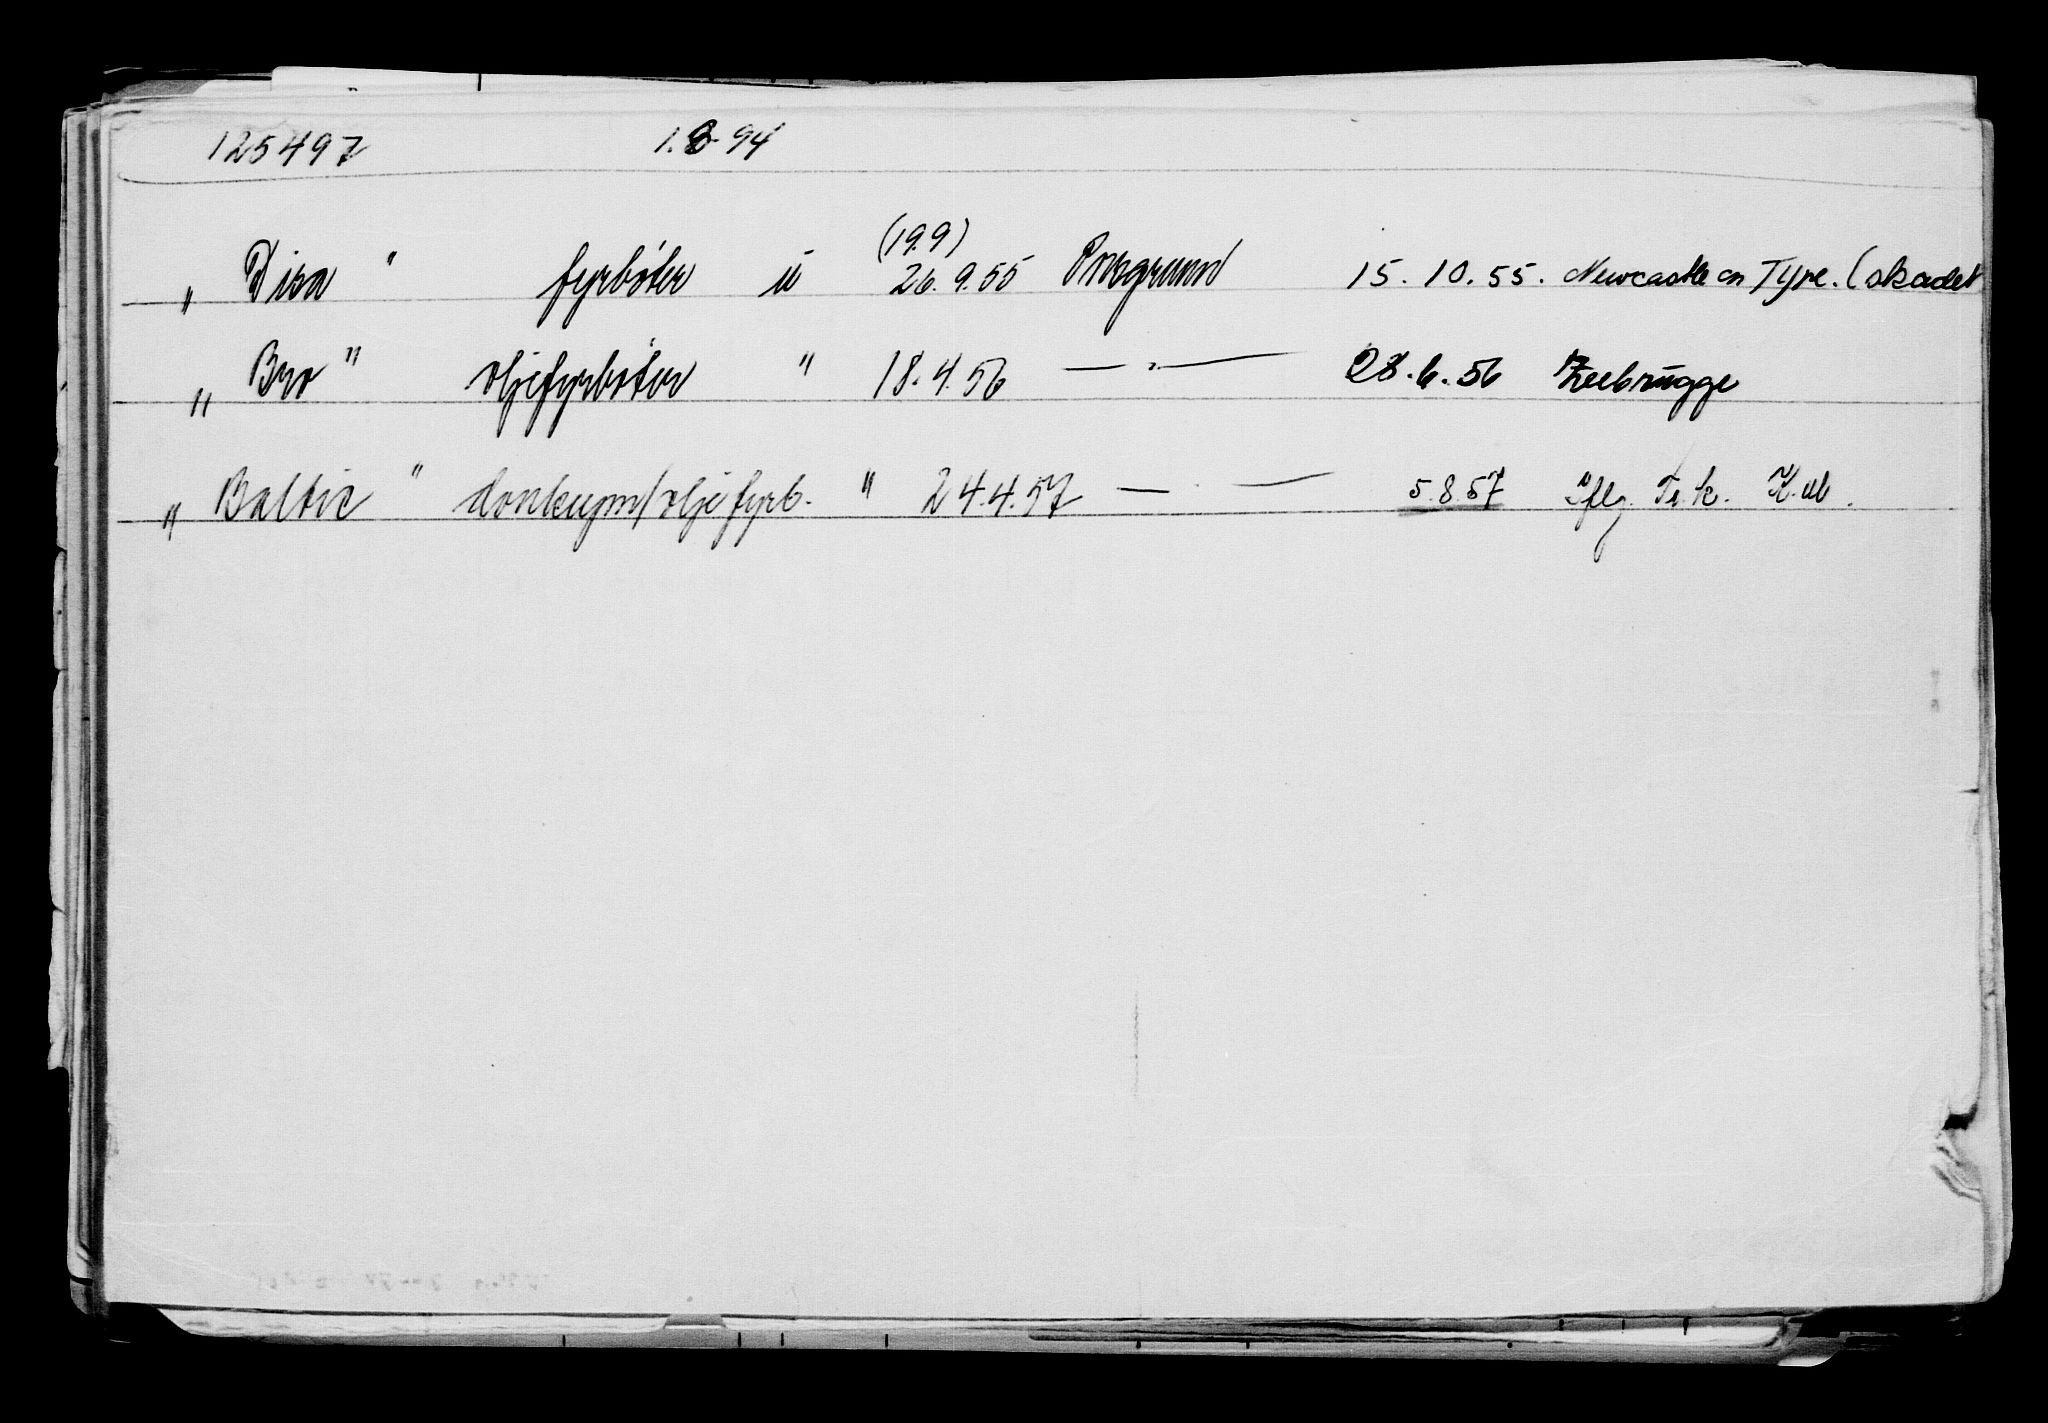 125497 1.8.94
(19.9)
„ Disa " fyrbøter u 26.9.55 Porsgrunn 15.10.55. Newcastle on Tyne. (skadet
„ Bro " oljefyrbøter " 18.4.56 — " — 28.6.56 Zeebrugge
„ Baltic " donkeym/oljefyrb. " 24.4.57 — " — 5.8.57